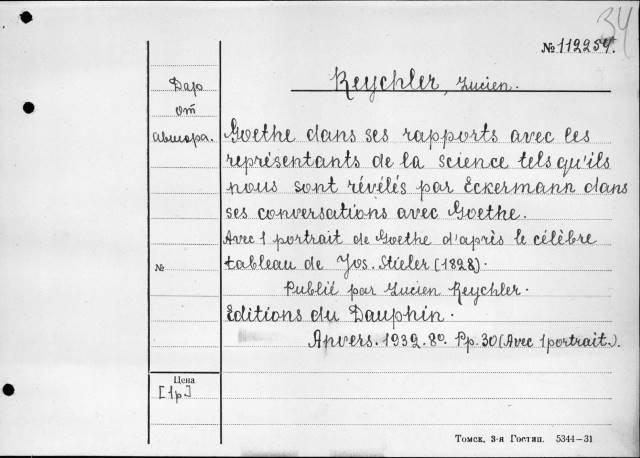 34
№ 112254.
Reychler, Lucien.
Даръ
от
автора.
Goethe dans ses rapports avec les
représentants de la science tels qu'ils
nous sont révélés par Eckermann dans
ses conversations avec Goethe.
Avec 1 portrait de Goethe d'après le célèbre
tableau de Jos. Stieler (1828).
Publié par Lucien Reychler.
Editions du Dauphin.
Anvers. 1932. 8º. Pp. 30 (Avec 1 portrait.).
№
Цена
[1р.]
Томск, 3-я Гостип. 5344—31